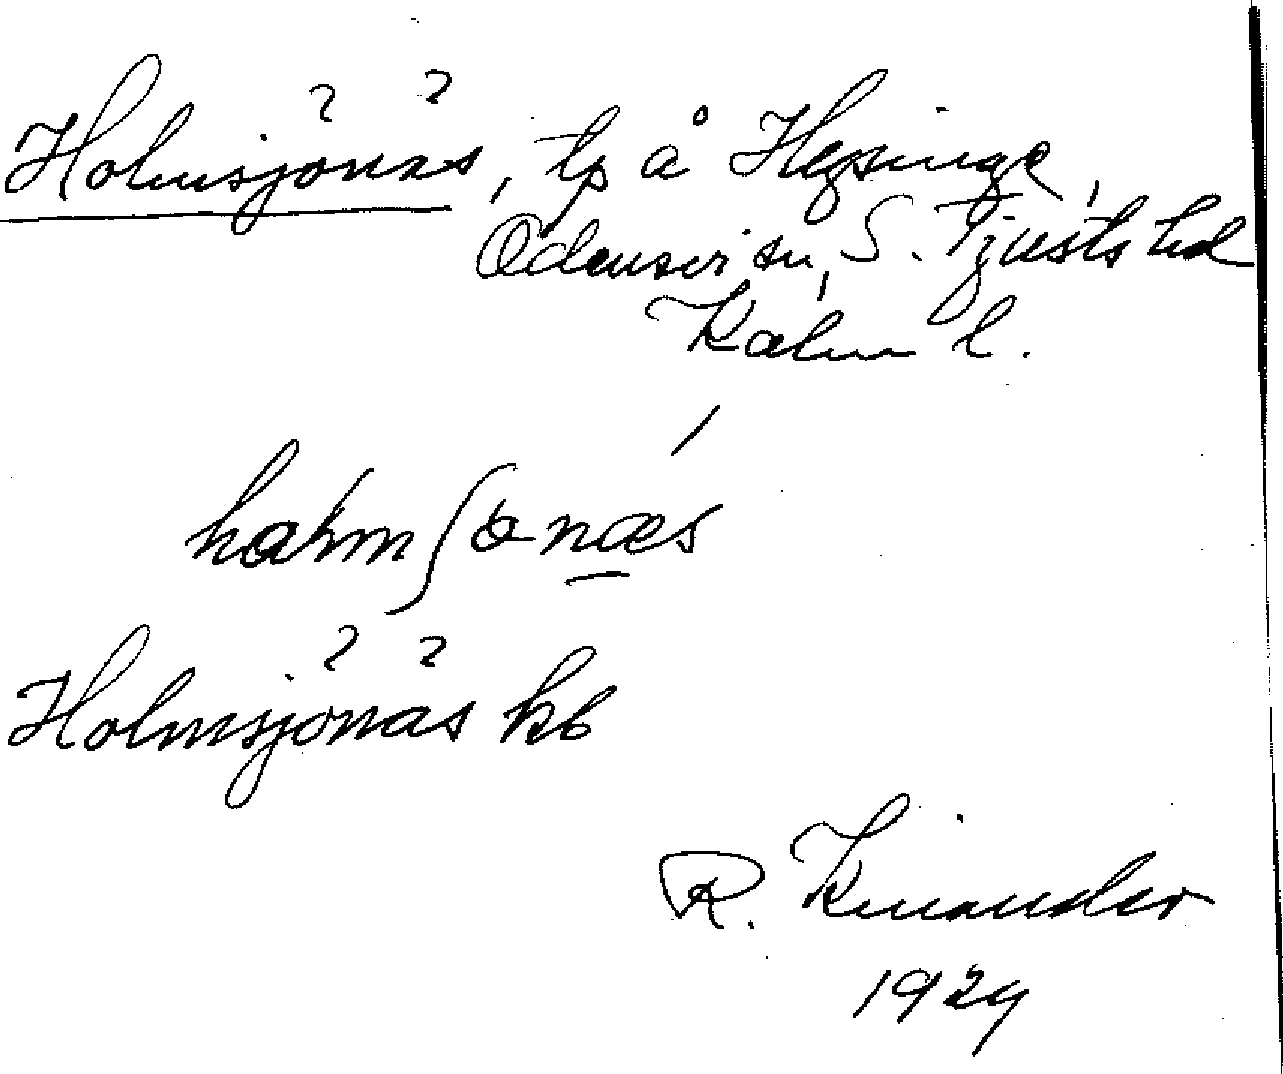 Holmsjönäs, tp å Hejsinge,
Odensvi sn, S. Tjusts hd
Kalm l.
holmʃönæs
Holmsjönäs kb
R. Kinander
1929